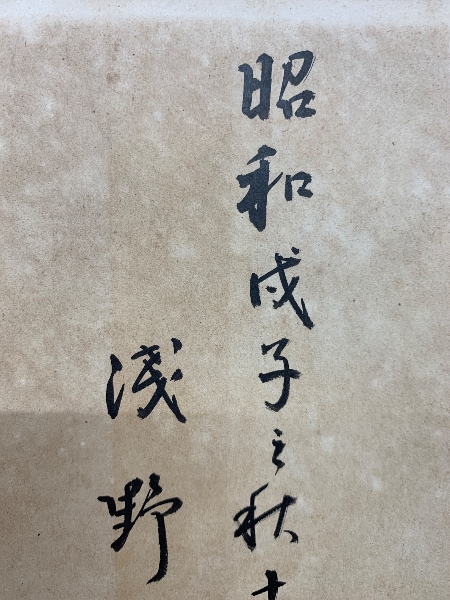 昭和戊子之秋十
淺野